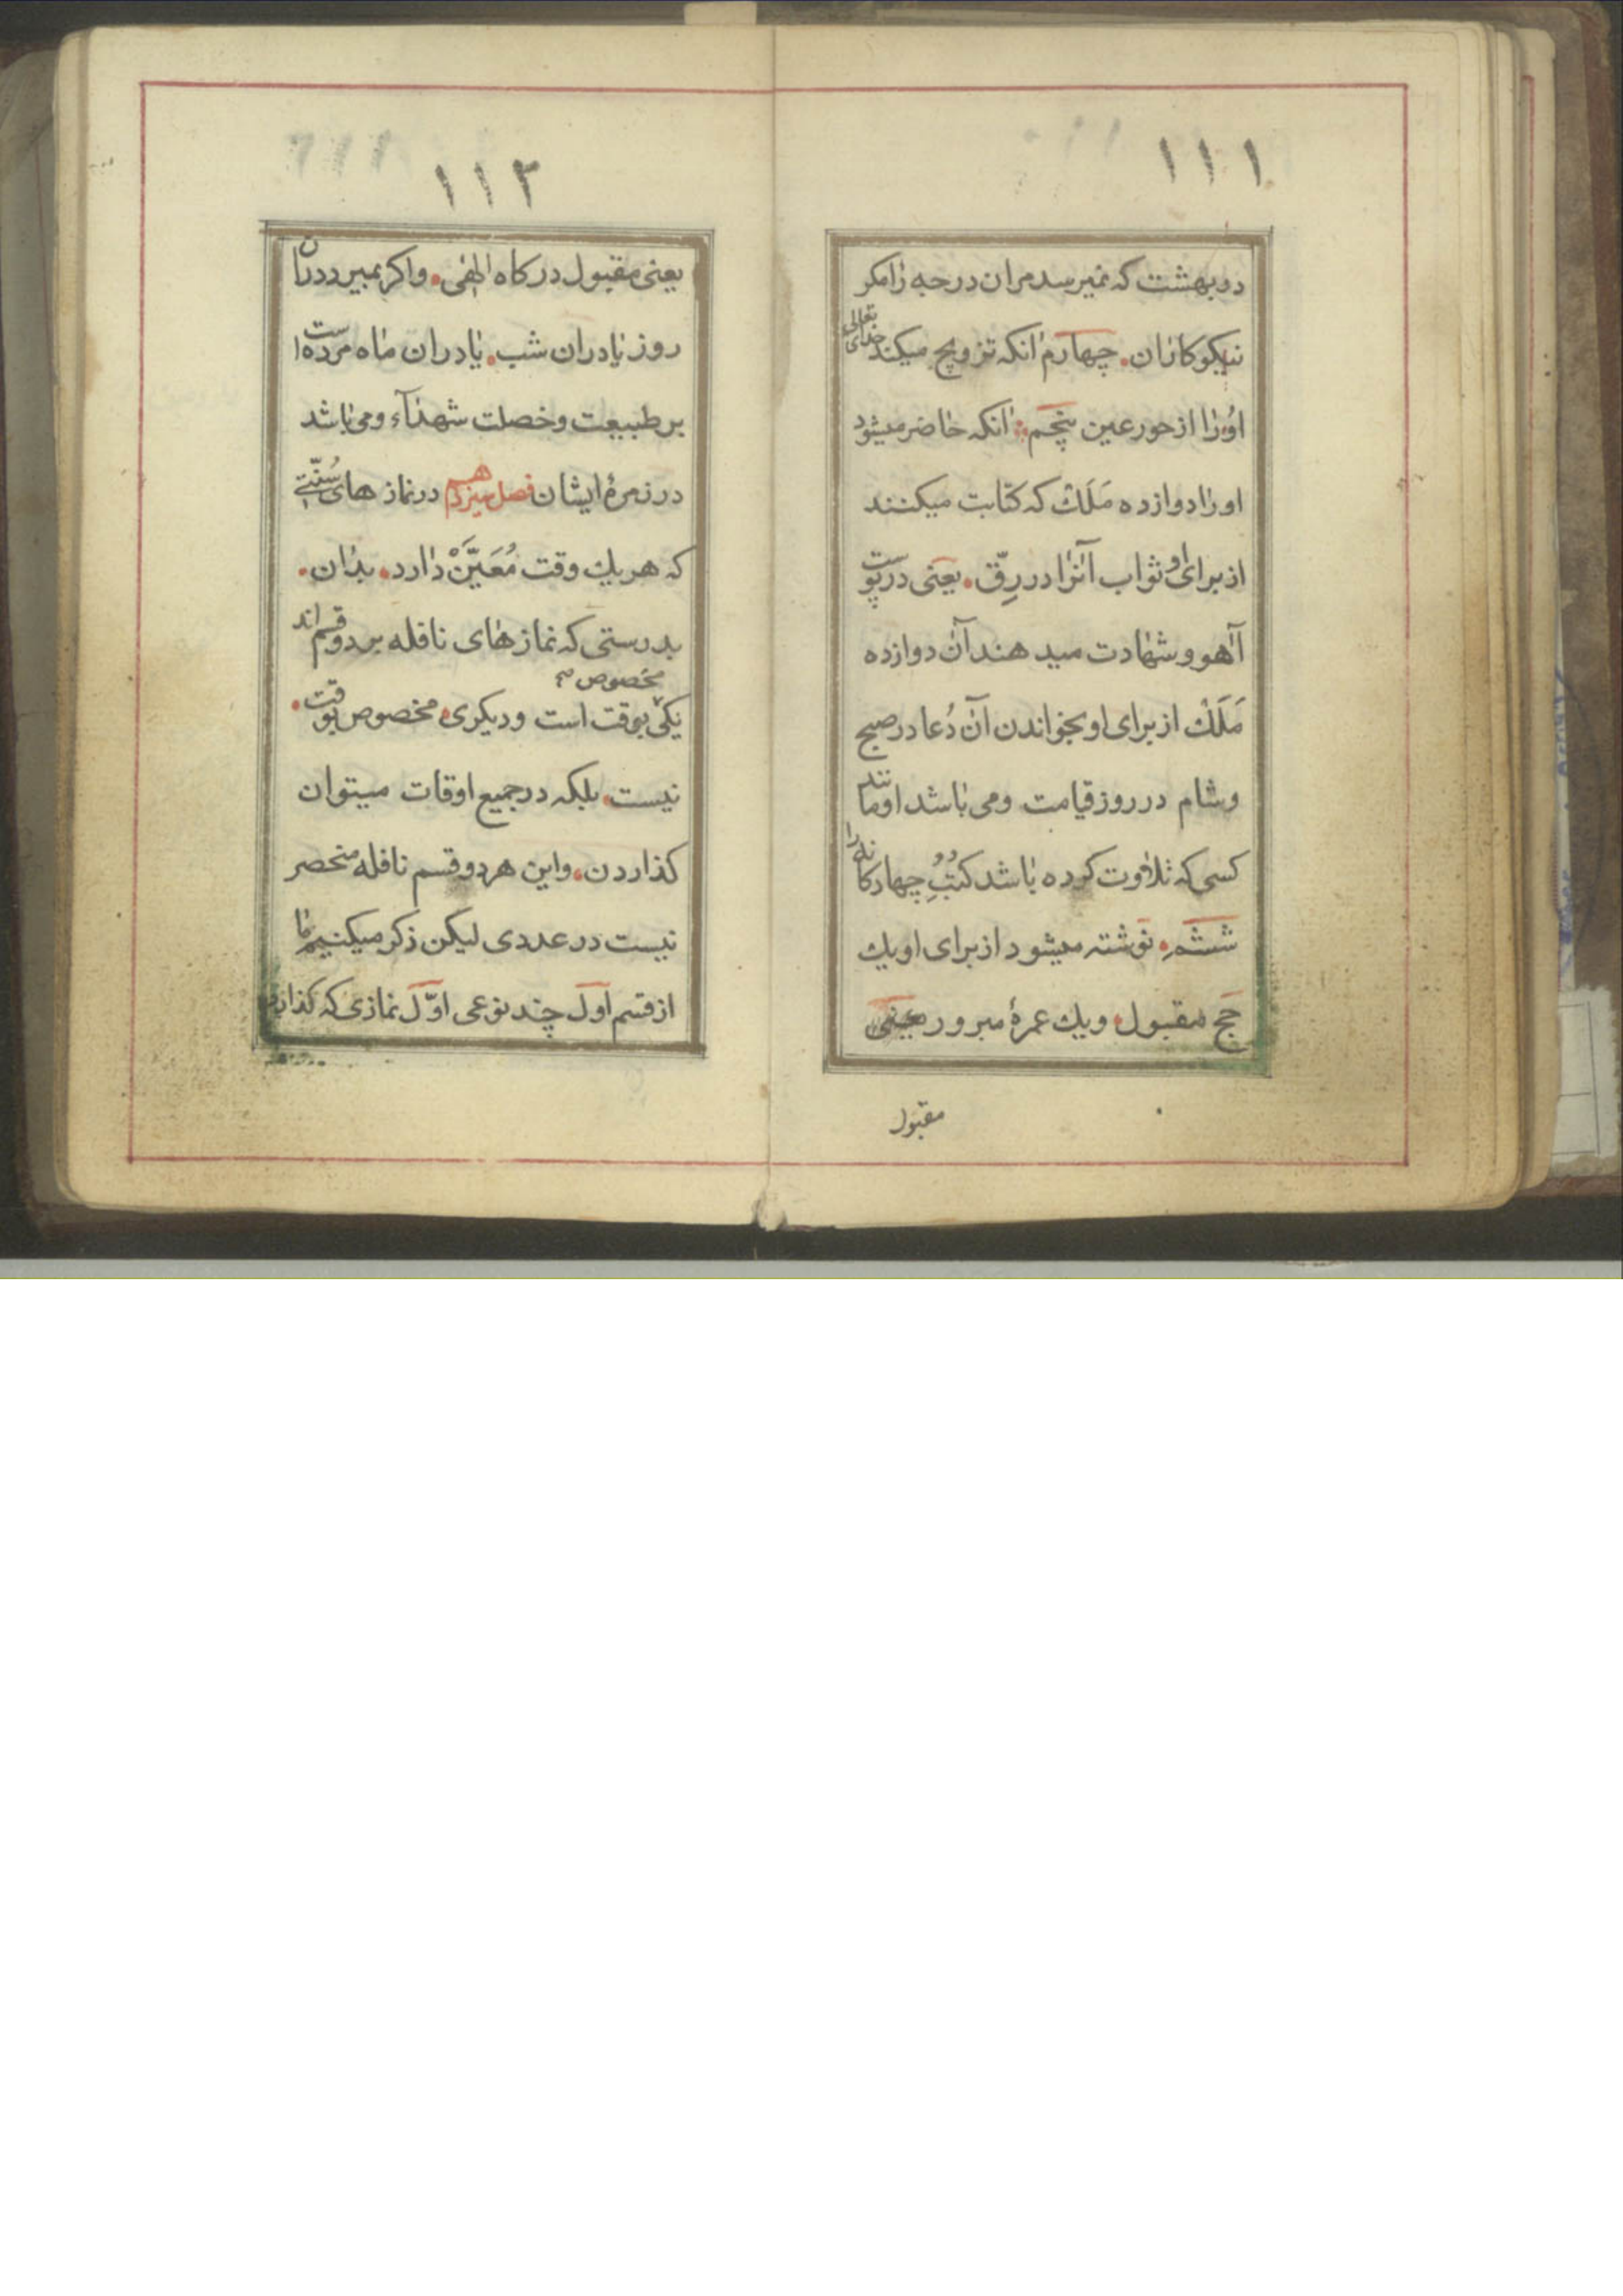 ۱۱۱
در بهشت که نمیرسد مران درجه را مکر
نیکوکاران. چهارم انکه تزویج میکند خدای تعالی
اورا از حور عین پنجم انکه حاضر میشود
اورا دوازده مَلَك که کتابت میکنند
از برای او ثواب آنرا در رِقّ. یعنی در پوست
آهو و شهادت میدهند آن دوازده
مَلَك از برای او بخواندن آن دُعا در صبح
وشام در روز قیامت ومی باشد او مانند
کسی که تلاوت کرده باشد کتُبِ چهارکانه را
ششم. نوشته میشود از برای او یك
حج مقبول. ویك عمرهٔ مبرور یعنی
مقبول
۱۱۲
یعنی مقبول درکاه الهی. واکر بمیرد دران
روز یا دران شب. یا دران ماه مرده است
بر طبیعت وخصلت شهدآء ومی باشد
در زمرهٔ ایشان فصل سیزدهم در نماز های سُنّتی
که هر یك وقت مُعَیَّنْ دارد. بدان.
بدرستی که نماز های نافله بر دو قسم اند
مخصوص
یکی بوقت است ودیکری مخصوص بوقت.
نیست. بلکه در جمیع اوقات میتوان
کذاردن. واین هر دو قسم نافله منحصر
نیست در عددی لیکن ذکر میکنیم ما
از قسم اول چند نوعی اوّل نمازی که